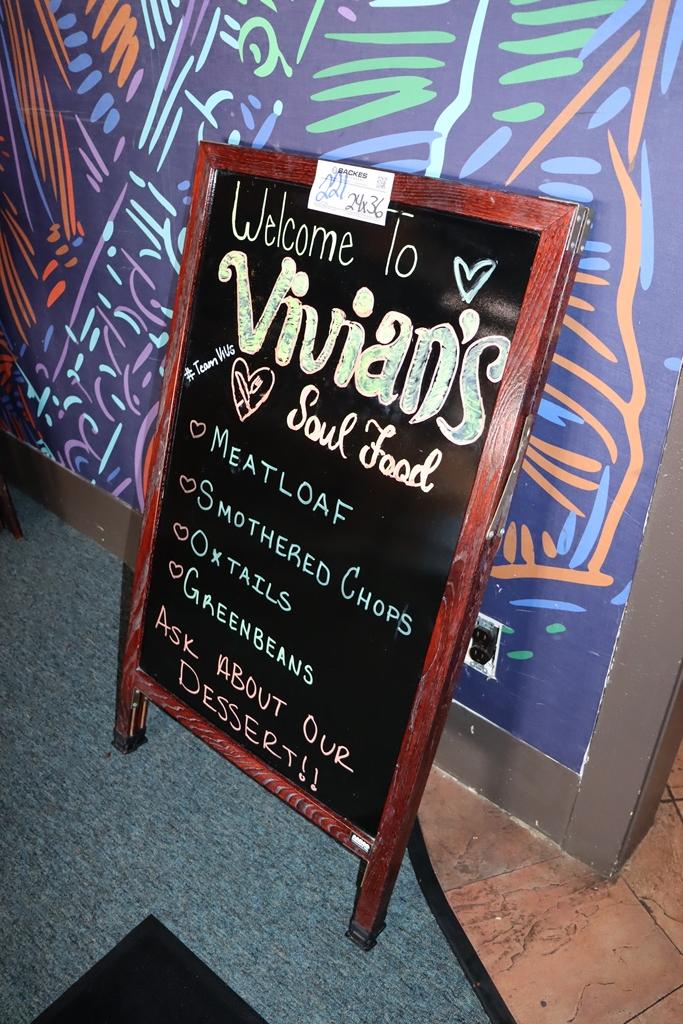 BACKES
221
24x36
Welcome To
Vivian's
#TeamViVs
Soul Food
MEATLOAF
SMOTHERED CHOPS
OXTAILS
GREENBEANS
ASK ABOUT OUR
DESSERT!!